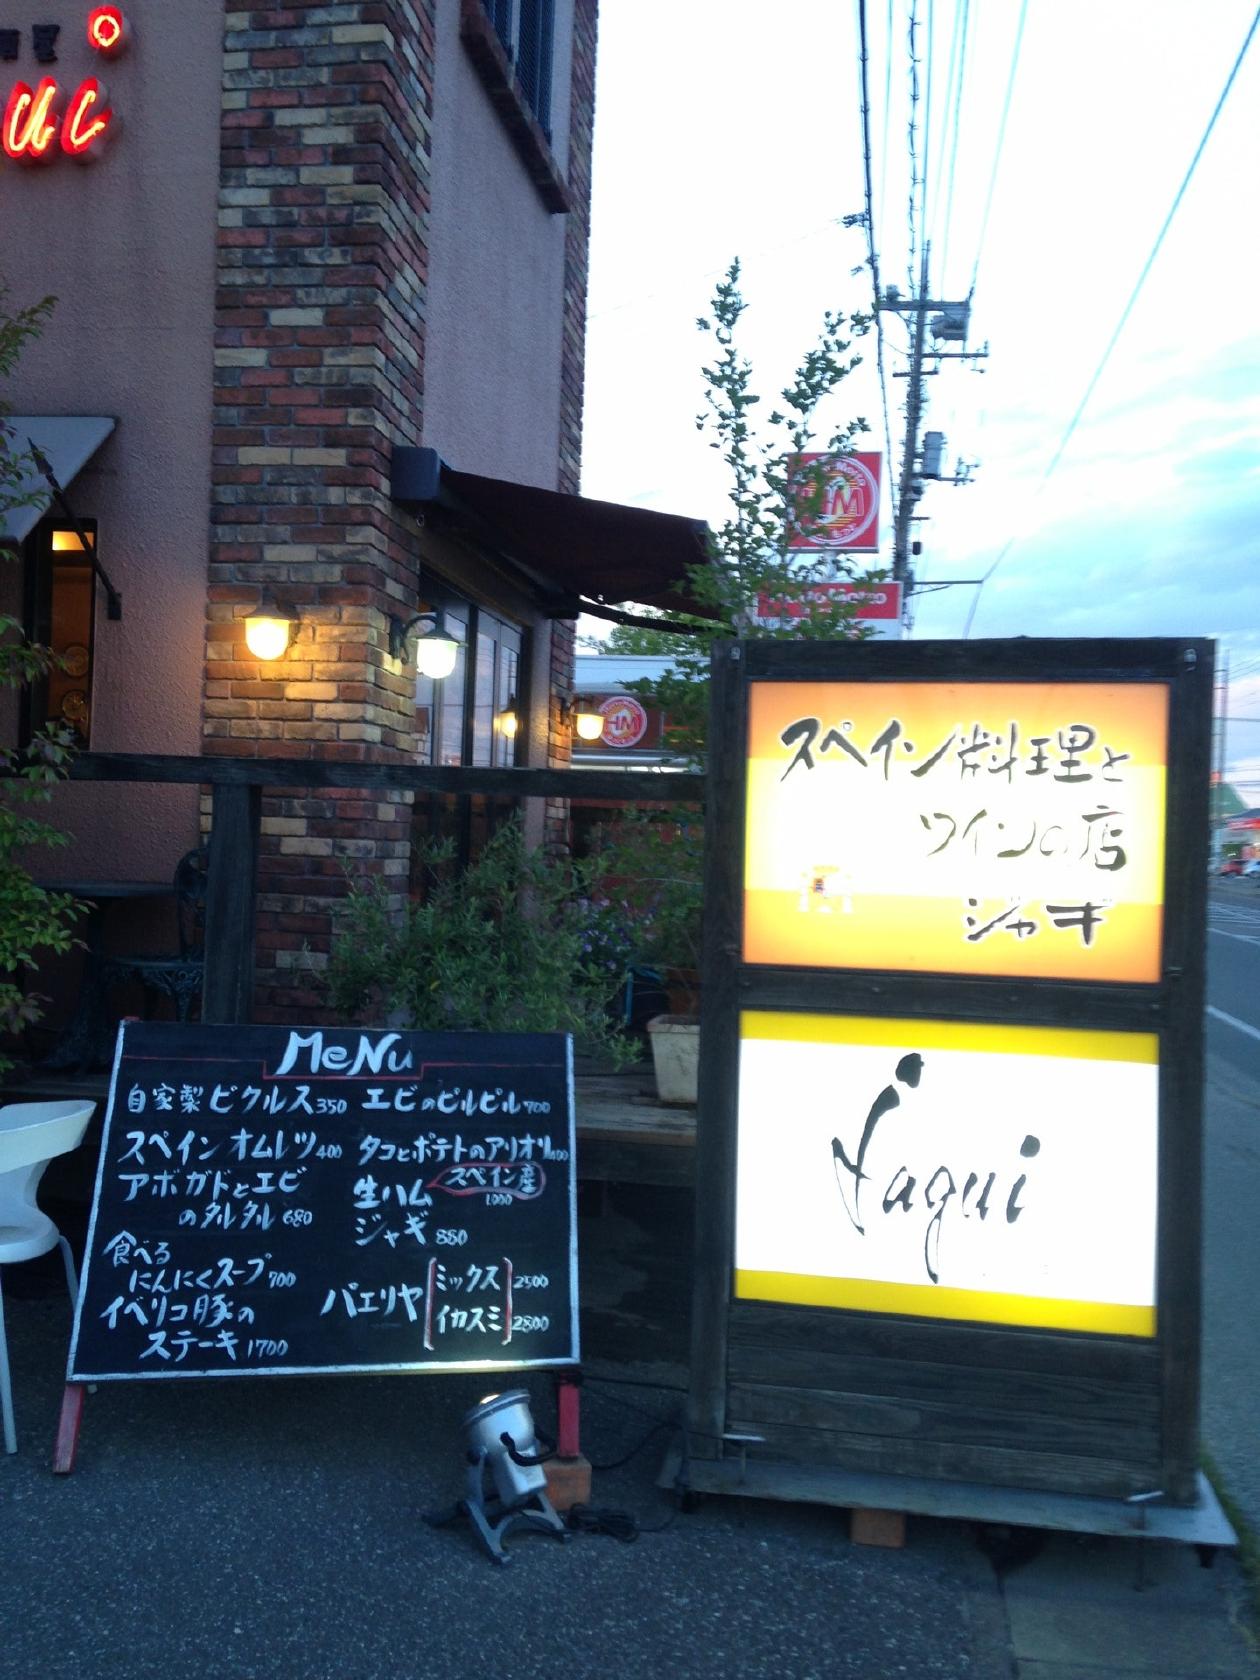 スペイン料理と
ワインの店
ジャギ
Jagui
MeNu
自家製ピクルス350
スペインオムレツ400
アボガドとエビ
のタルタル680
食べる
にんにくスープ700
イベリコ豚の
ステーキ1700
エビのピルピル700
タコとポテトのアリオリ
生ハム スペイン産
1000
ジャギ880
パエリヤ
ミックス 2500
イカスミ 2800
HM
HM